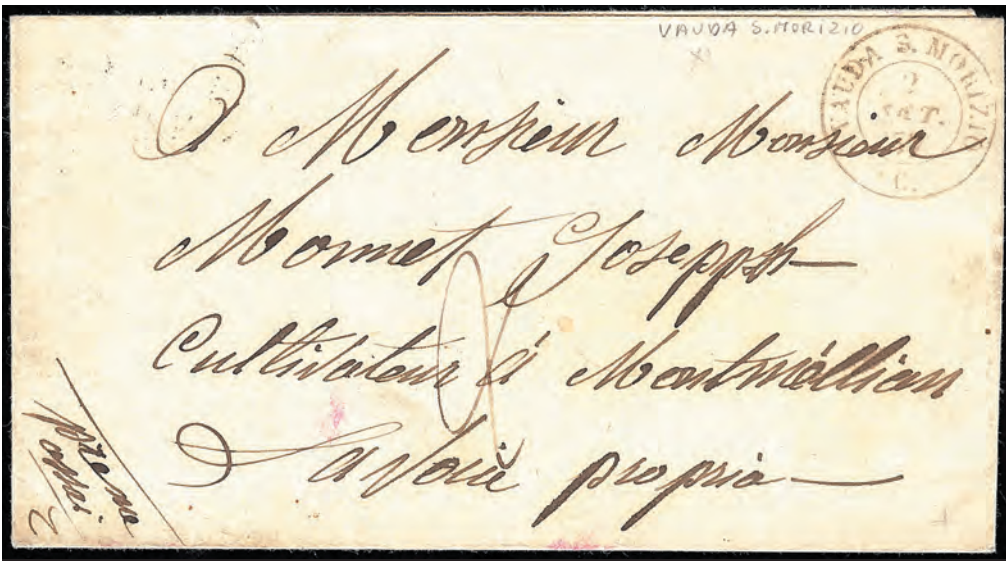 VAUDA S. MORIZIO
VAUDA S. MORIZIO
2
SET.
C.
A Monsieur Monsieur
Mornet Josepph
Cultivateur à Montmèllian
Savoiè propria
preme